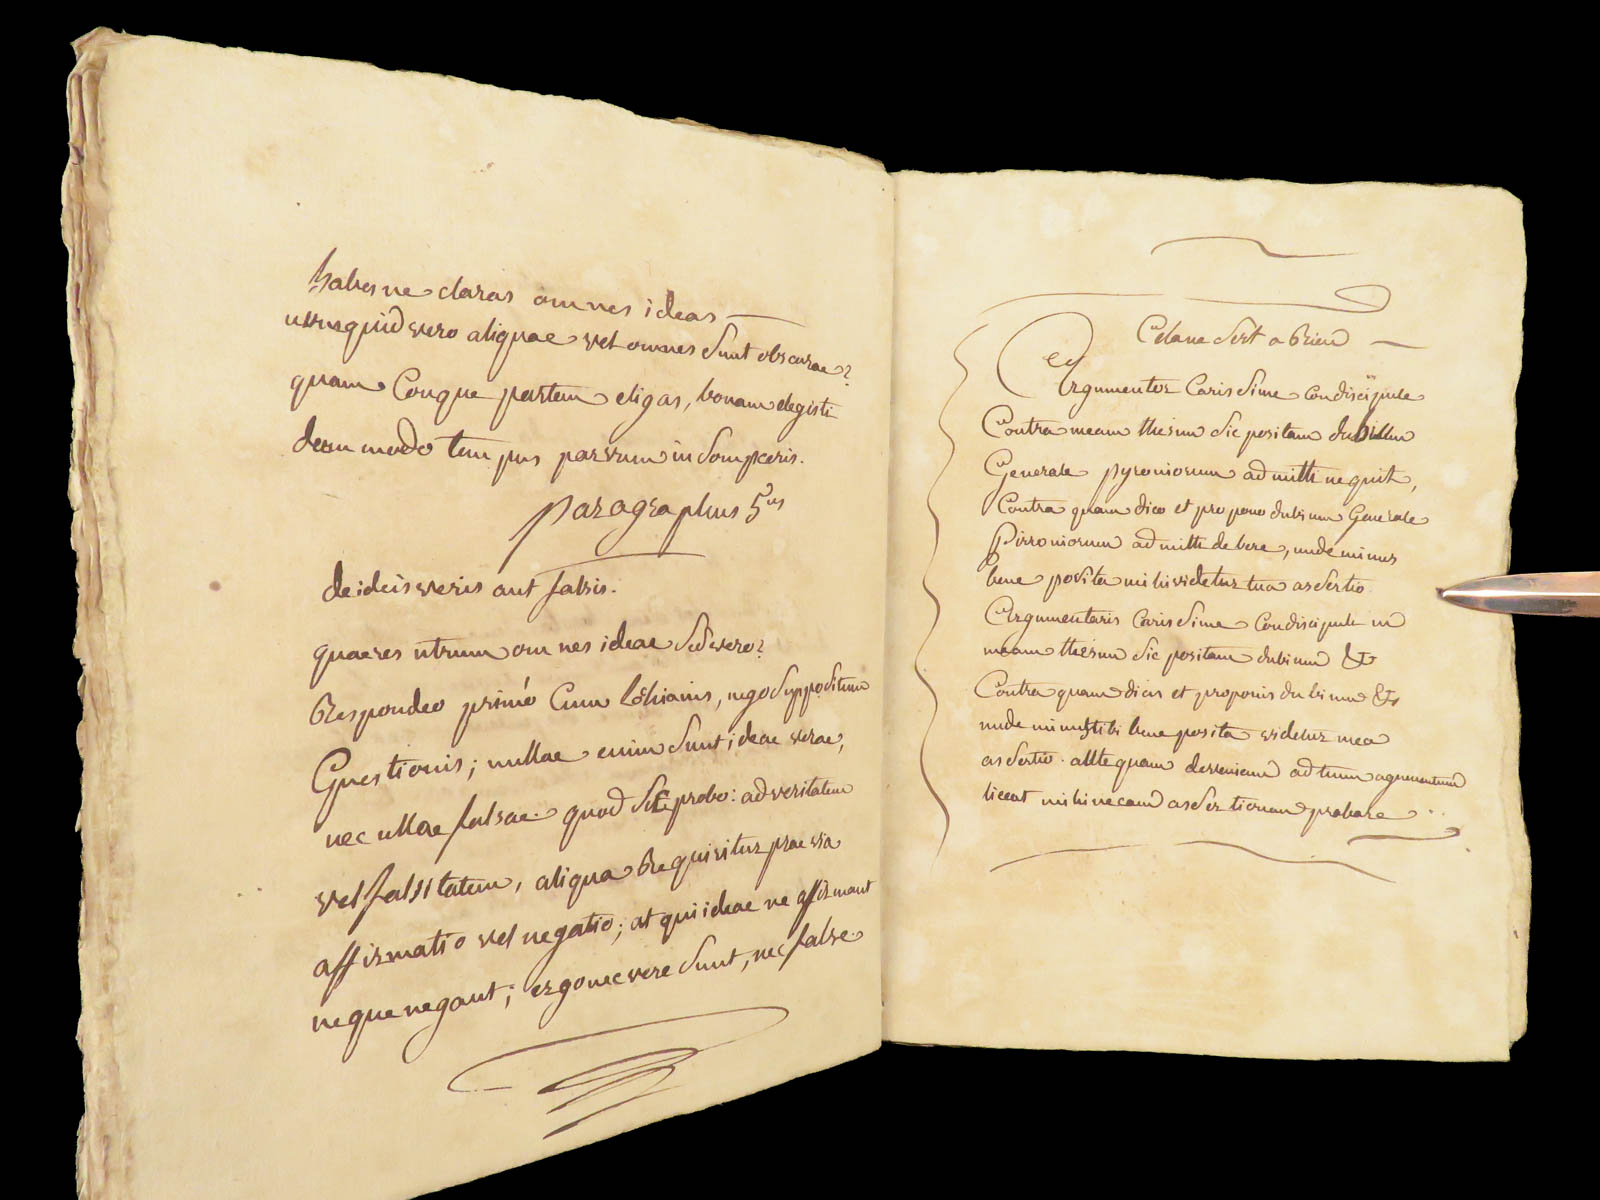 habesne claras omnes ideas
utrumquid vero aliquae vel omnes sunt obscurae?
quam cunque partem eligas, bonam elegisti
dum modo tempus parvum in sompceris.
paragraphus 5us
de ideis veris aut falsis.
quaeres utrum omnes ideae sid vero?
Respondeo primò cum, nego suppositum
questionis; nullae enim sunt ideae verae,
nec ullae falsae. quod sic probo: ad veritatem
vel falsitatem, aliqua Requiritur praevia
affirmatio vel negatio; at qui ideae ne affirmant
neque negant; ergo nec vere sunt, nec false.
Argumentor Carissime condiscipule
Contra meam thesim sic positam dubium
Generale pyroniorum admitti nequit,
Contra quam dico et propono dubium Generale
Pirroniorum admitti debere, unde minus
bene posita mihi videtur tua assertio.
Argumentaris carissime condiscipule in
meam thesim sic positam dubium &
Contra quam dicis et proponis dubium &
unde minus tibi bene posita videtur mea
assertio. attequam derveniam ad tuum agumentum
liceat mihi meam assertionam probare